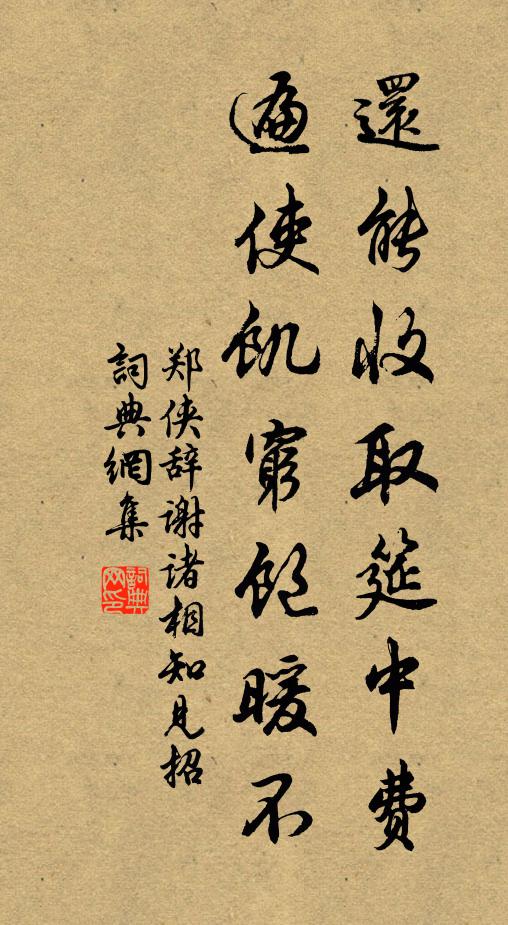 還能收取筵中費
遍使飢窮飽暖不
郑侠辞谢诸相知见招
詞典網集
詞典網印